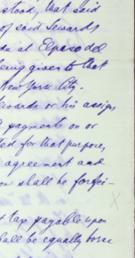 stood, that said
of said Sewards
da at Elpaso del
being given to that
New York City.
Edwards or his assigns
payments on or
ed for that purpose,
agreement and
on shall be forfei-
t tax payable upon
shall be equally borne